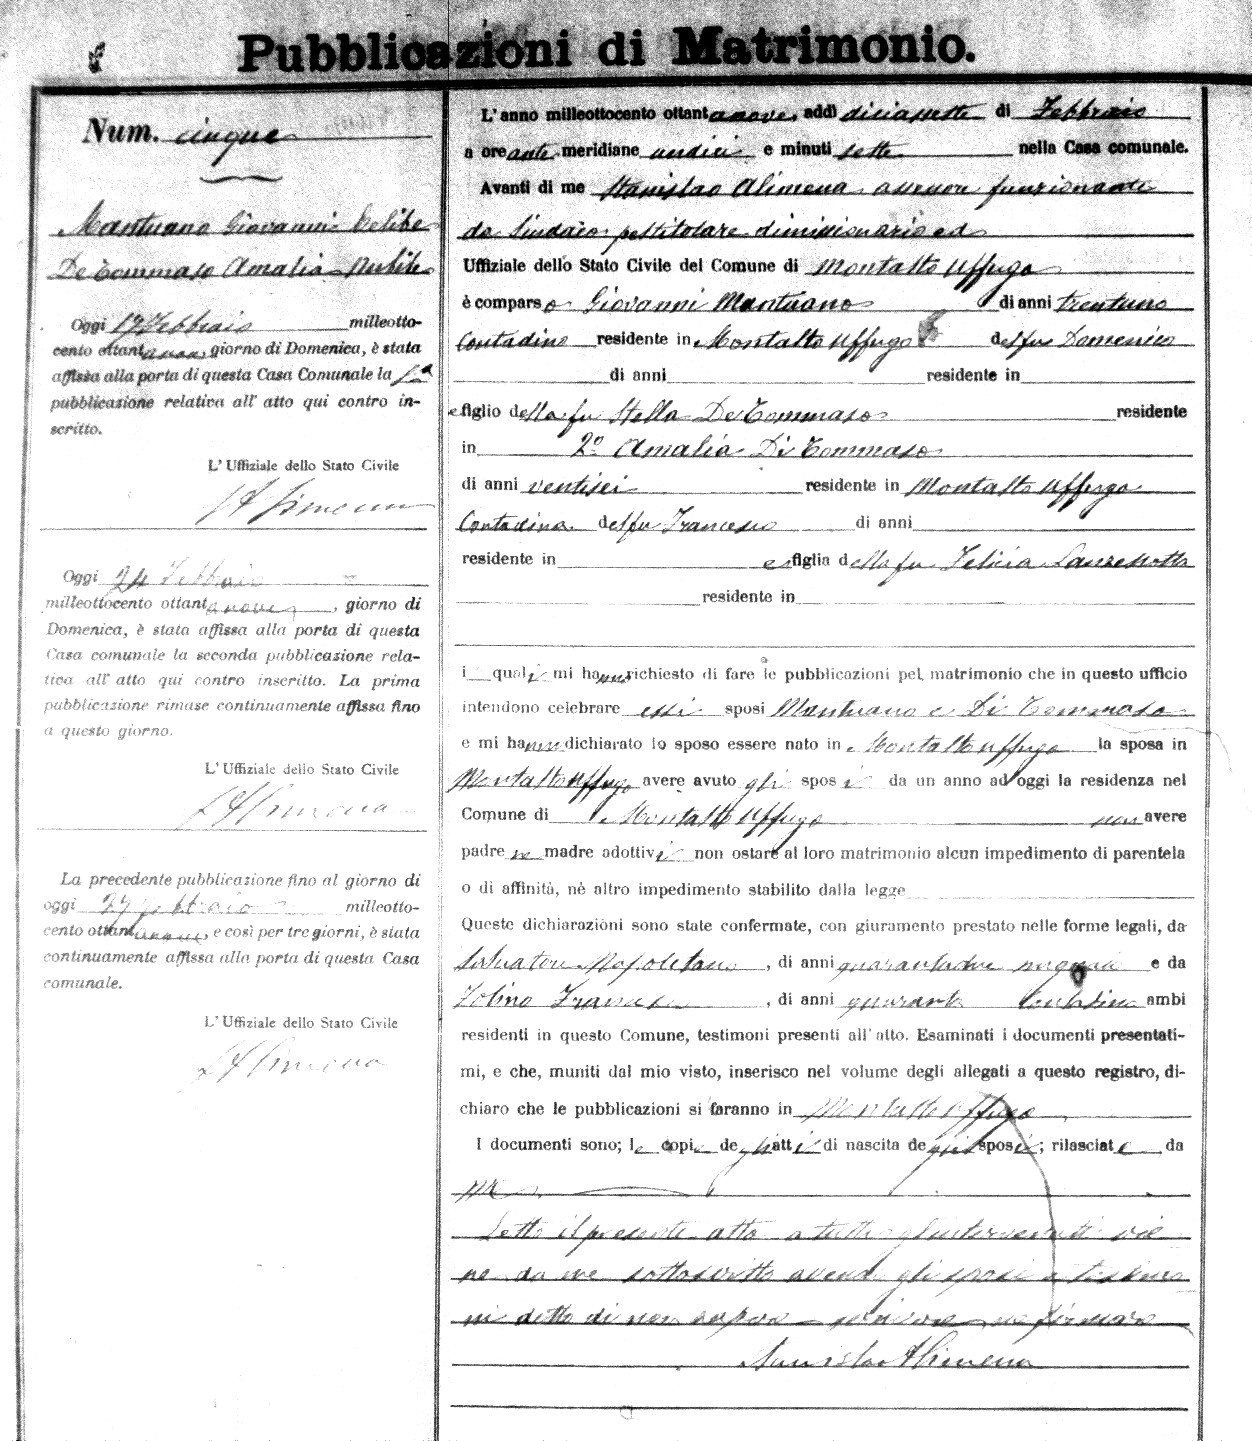 Pubblicazioni di Matrimonio.
Num. cinque
Mantuano Giovanni Celibe
De Tommaso Amalia Nubile
Oggi 17 Febbraio milleotto-
cento ottantanove, giorno di Domenica, è stata
affissa alla porta di questa Casa Comunale la 1a
pubblicazione relativa all' atto qui contro in-
scritto.
L' Uffiziale dello Stato Civile
SAlimena
Oggi 24 Febbraio
milleottocento ottantanove, giorno di
Domenica, è stata affissa alla porta di questa
Casa comunale la seconda pubblicazione rela-
tiva all' atto qui contro inscritto. La prima
pubblicazione rimase continuamente affissa fino
a questo giorno.
L' Uffiziale dello Stato Civile
SAlimena
La precedente pubblicazione fino al giorno di
oggi 27 febbraio milleotto-
cento ottantanove, e così per tre giorni, è stata
continuamente affissa alla porta di questa Casa
comunale.
L' Uffiziale dello Stato Civile
SAlimena
L' anno milleottocento ottantanove, addì diciassette di Febbraio
a ore ante meridiane undici e minuti sette nella Casa comunale.
Avanti di me Stanislao Alimena assessore funzionante
da Sindaco pel titolare dimissionario ed
Uffiziale dello Stato Civile del Comune di Montalto Uffugo
è comparso Giovanni Mantuano di anni trentuno
Contadino residente in Montalto Uffugo del fu Domenico
di anni residente in
e figlio della fu Stella De Tommaso residente
in 2º Amalia Di Tommaso
di anni ventisei residente in Montalto Uffugo
Contadina del fu Francesco di anni
residente in e figlia della fu Felicia Lanzellotta
residente in
i quali mi hanno richiesto di fare le pubblicazioni pel matrimonio che in questo ufficio
intendono celebrare essi sposi Mantuano e Di Tommaso
e mi hanno dichiarato lo sposo essere nato in Montalto Uffugo la sposa in
Montalto Uffugo avere avuto gli sposi da un anno ad oggi la residenza nel
Comune di Montalto Uffugo non avere
padre ne madre adottivi non ostare al loro matrimonio alcun impedimento di parentela
o di affinità, nè altro impedimento stabilito dalla legge
Queste dichiarazioni sono state confermate, con giuramento prestato nelle forme legali, da
Salvatore Napoletano, di anni quarantadue e da
Francesco, di anni quaranta contadino ambi
residenti in questo Comune, testimoni presenti all' atto. Esaminati i documenti presentati-
mi, e che, muniti dal mio visto, inserisco nel volume degli allegati a questo registro, di-
chiaro che le pubblicazioni si faranno in Montalto Uffugo
I documenti sono; le copie degli atti di nascita degli sposi; rilasciate da
me
Letto il presente atto a tutti gl'intervenuti vie
ne da me sottoscritto avendo gli sposi e testimo
ni detto di non sapere firmare
Stanislao Alimena